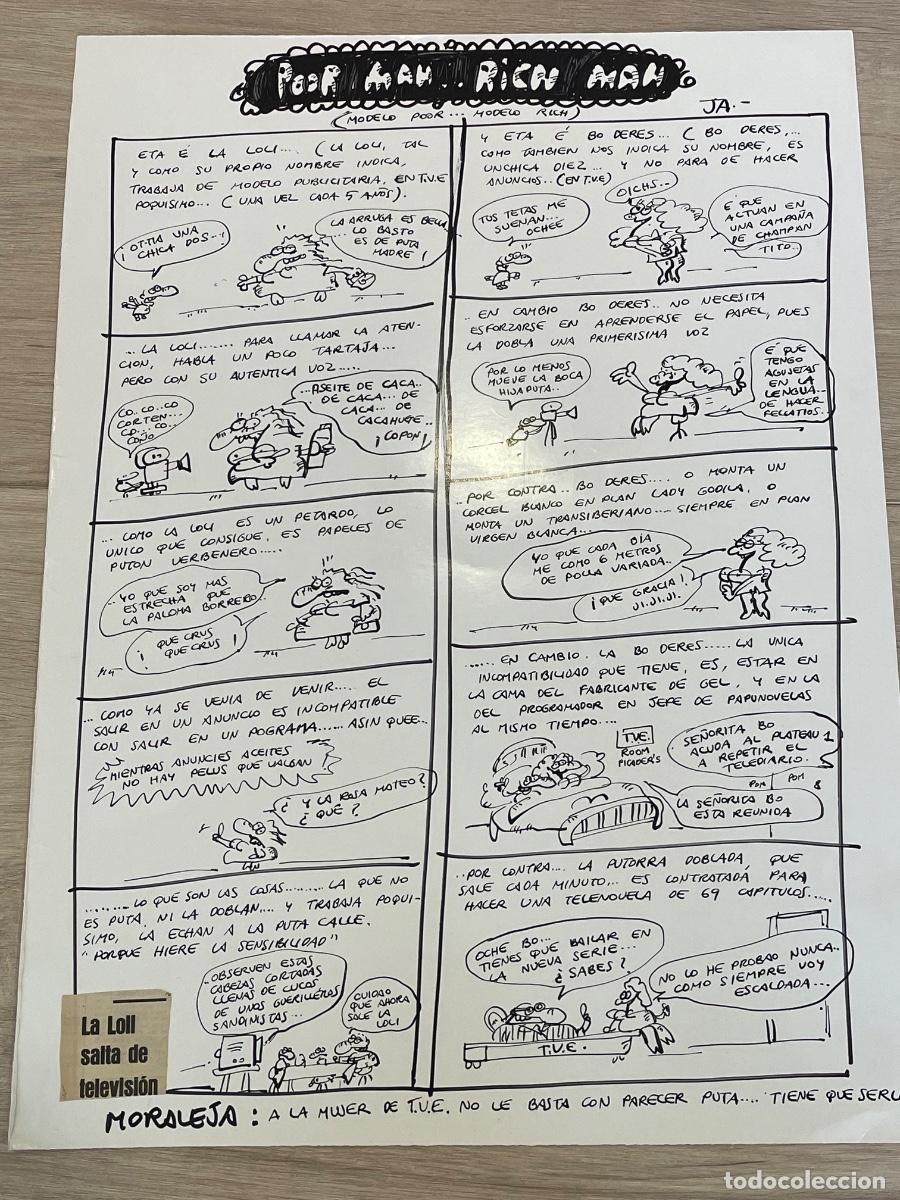 POOR MAN.. RICH MAN
(MODELO POOR... MODELO RICH)
JA.-
ETA É LA LOLI.... (LA LOLI, TAL
Y COMO SU PROPIO NOMBRE INDICA,
TRABAJA DE MODELO PUBLICITARIA, EN T.V.E
POQUISIMO... (UNA VEL CADA 5 AÑOS).
¡OTTIA UNA
CHICA DOS..!
LA ARRUGA ES BELLA
LO BASTO
ES DE PUTA
MADRE!
...LA LOLI....... PARA LLAMAR LA ATEN-
CION, HABLA UN POCO TARTAJA...
PERO CON SU AUTENTICA VOZ.....
CO..CO..CO
CORTEN...
CO...CO...
COÑO
...ASEITE DE CACA..
DE CACA... DE
CACA... DE
CACAHUSE...
¡COPON!
... COMO LA LOLI ES UN PETARDO, LO
UNICO QUE CONSIGUE, ES PAPELES DE
PUTON VERBENERO.....
..YO QUE SOY MAS
ESTRECHA QUE
LA PALOMA BORRERO..
¡QUE CRUS
QUE CRUS!
...COMO YA SE VENIA DE VENIR.... EL
SALIR EN UN ANUNCIO ES INCOMPATIBLE
CON SALIR EN UN POGRAMA...... ASIN QUEE...
MIENTRAS ANUNCIES ACEITES
NO HAY PELUS QUE VALGAN!
¿Y LA ROSA MATEO?
¿QUÉ?
......... LO QUE SON LAS COSAS......... LA QUE NO
ES PUTA, NI LA DOBLAN.... Y TRABAJA POQUI-
SIMO, LA ECHAN A LA PUTA CALLE.
"PORQUE HIERE LA SENSIBILIDAD"
"OBSERVEN ESTAS
CABEZAS CORTADAS
LLENAS DE CUCOS
DE UNOS GUERILLEROS
SANDINISTAS...
CUIDAO
QUE AHORA
SALE LA
LOLI
La Loli
salta de
televisión
Y ETA É BO DERES... (BO DERES,...
COMO TAMBIEN NOS INDICA SU NOMBRE, ES
UNCHICA DIEZ... Y NO PARA DE HACER
ANUNCIOS..(EN T.V.E)
TUS TETAS ME
SUENAN...
OCHEE
OICHS..
É QUE
ACTUAN EN
UNA CAMPAÑA
DE CHAMPAN
TITO..
..EN CAMBIO BO DERES.. NO NECESITA
ESFORZARSE EN APRENDERSE EL PAPEL, PUES
LA DOBLA UNA PRIMERISIMA VOZ
POR LO MENOS
MUEVE LA BOCA
HIJAPUTA..
É QUE
TENGO
AGUJETAS
EN LA
LENGUA..
DE HACER
FELLATIOS..
..POR CONTRA.. BO DERES.... O MONTA UN
CORCEL BLANCO EN PLAN LADY GODILA, O
MONTA UN TRANSIBERIANO.... SIEMPRE EN PLAN
VIRGEN BLANCA...
YO QUE CADA DIA
ME COMO 6 METROS
DE POLLA VARIADA..
¡QUE GRACIA!
JI.JI.JI.
..... EN CAMBIO. LA BO DERES.....LA UNICA
INCOMPATIBILIDAD QUE TIENE, ES, ESTAR EN
LA CAMA DEL FABRICANTE DE GEL, Y EN LA
DEL PROGRAMADOR EN JEFE DE PAPUNOVELAS
AL MISMO TIEMPO....
T.V.E.
ROOM
PICADER'S
SEÑORITA BO
ACUDA AL PLATEAU 1
A REPETIR EL
TELEDIARIO.
POM POM
LA SEÑORITA BO
ESTA REUNIDA
..POR CONTRA.... LA PUTORRA DOBLADA, QUE
SALE CADA MINUTO,.. ES CONTRATADA PARA
HACER UNA TELENOUELA DE 69 CAPITULOS.....
OCHE BO...
TIENES QUE BAILAR EN
LA NUEVA SERIE...
¿SABES?
NO LO HE PROBAO NUNCA..
COMO SIEMPRE VOY
ESCALDADA...
T.V.E.
MORALEJA: A LA MUJER DE T.V.E. NO LE BASTA CON PARECER PUTA.... TIENE QUE SERL
todocoleccion